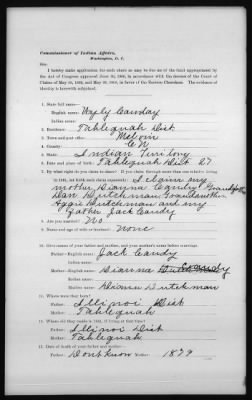 Commissioner of Indian Affairs,
Washington, D. C.
Sir:
I hereby make application for such share as may be due me of the fund appropriated by
the Act of Congress approved June 30, 1906, in accordance with the decrees of the Court of
Claims of May 18, 1905, and May 28, 1906, in favor of the Eastern Cherokees. The evidence of
identity is herewith subjoined.
1. State full name—
English name: Wyly Candy
Indian name:
2. Residence: Tahlequah Dist
3. Town and post office: Melvin
4. County: C N
5. State: Indian Territory
6. Date and place of birth: Tahlequah Dist 27
7. By what right do you claim to share? If you claim through more than one relative living
in 1851, set forth each claim separately: I claim my
mother Dianna Candy Grandfather
Dan Dutchman Grandmother
Aggie Dutchman and my
Father Jack Candy
8. Are you married? No
9. Name and age of wife or husband: None
10. Give names of your father and mother, and your mother's name before marriage.
Father—English name: Jack Candy
Indian name:
Mother—English name: Dianna Candy
Indian name:
Maiden name: Diana Dutchman
11. Where were they born?
Father: Illinoi Dist
Mother: Tahlequah
12. Where did they reside in 1851, if living at that time?
Father: Illinoi Dist
Mother: Tahlequah
13. Date of death of your father and mother—
Father: Dont know Mother: 1879